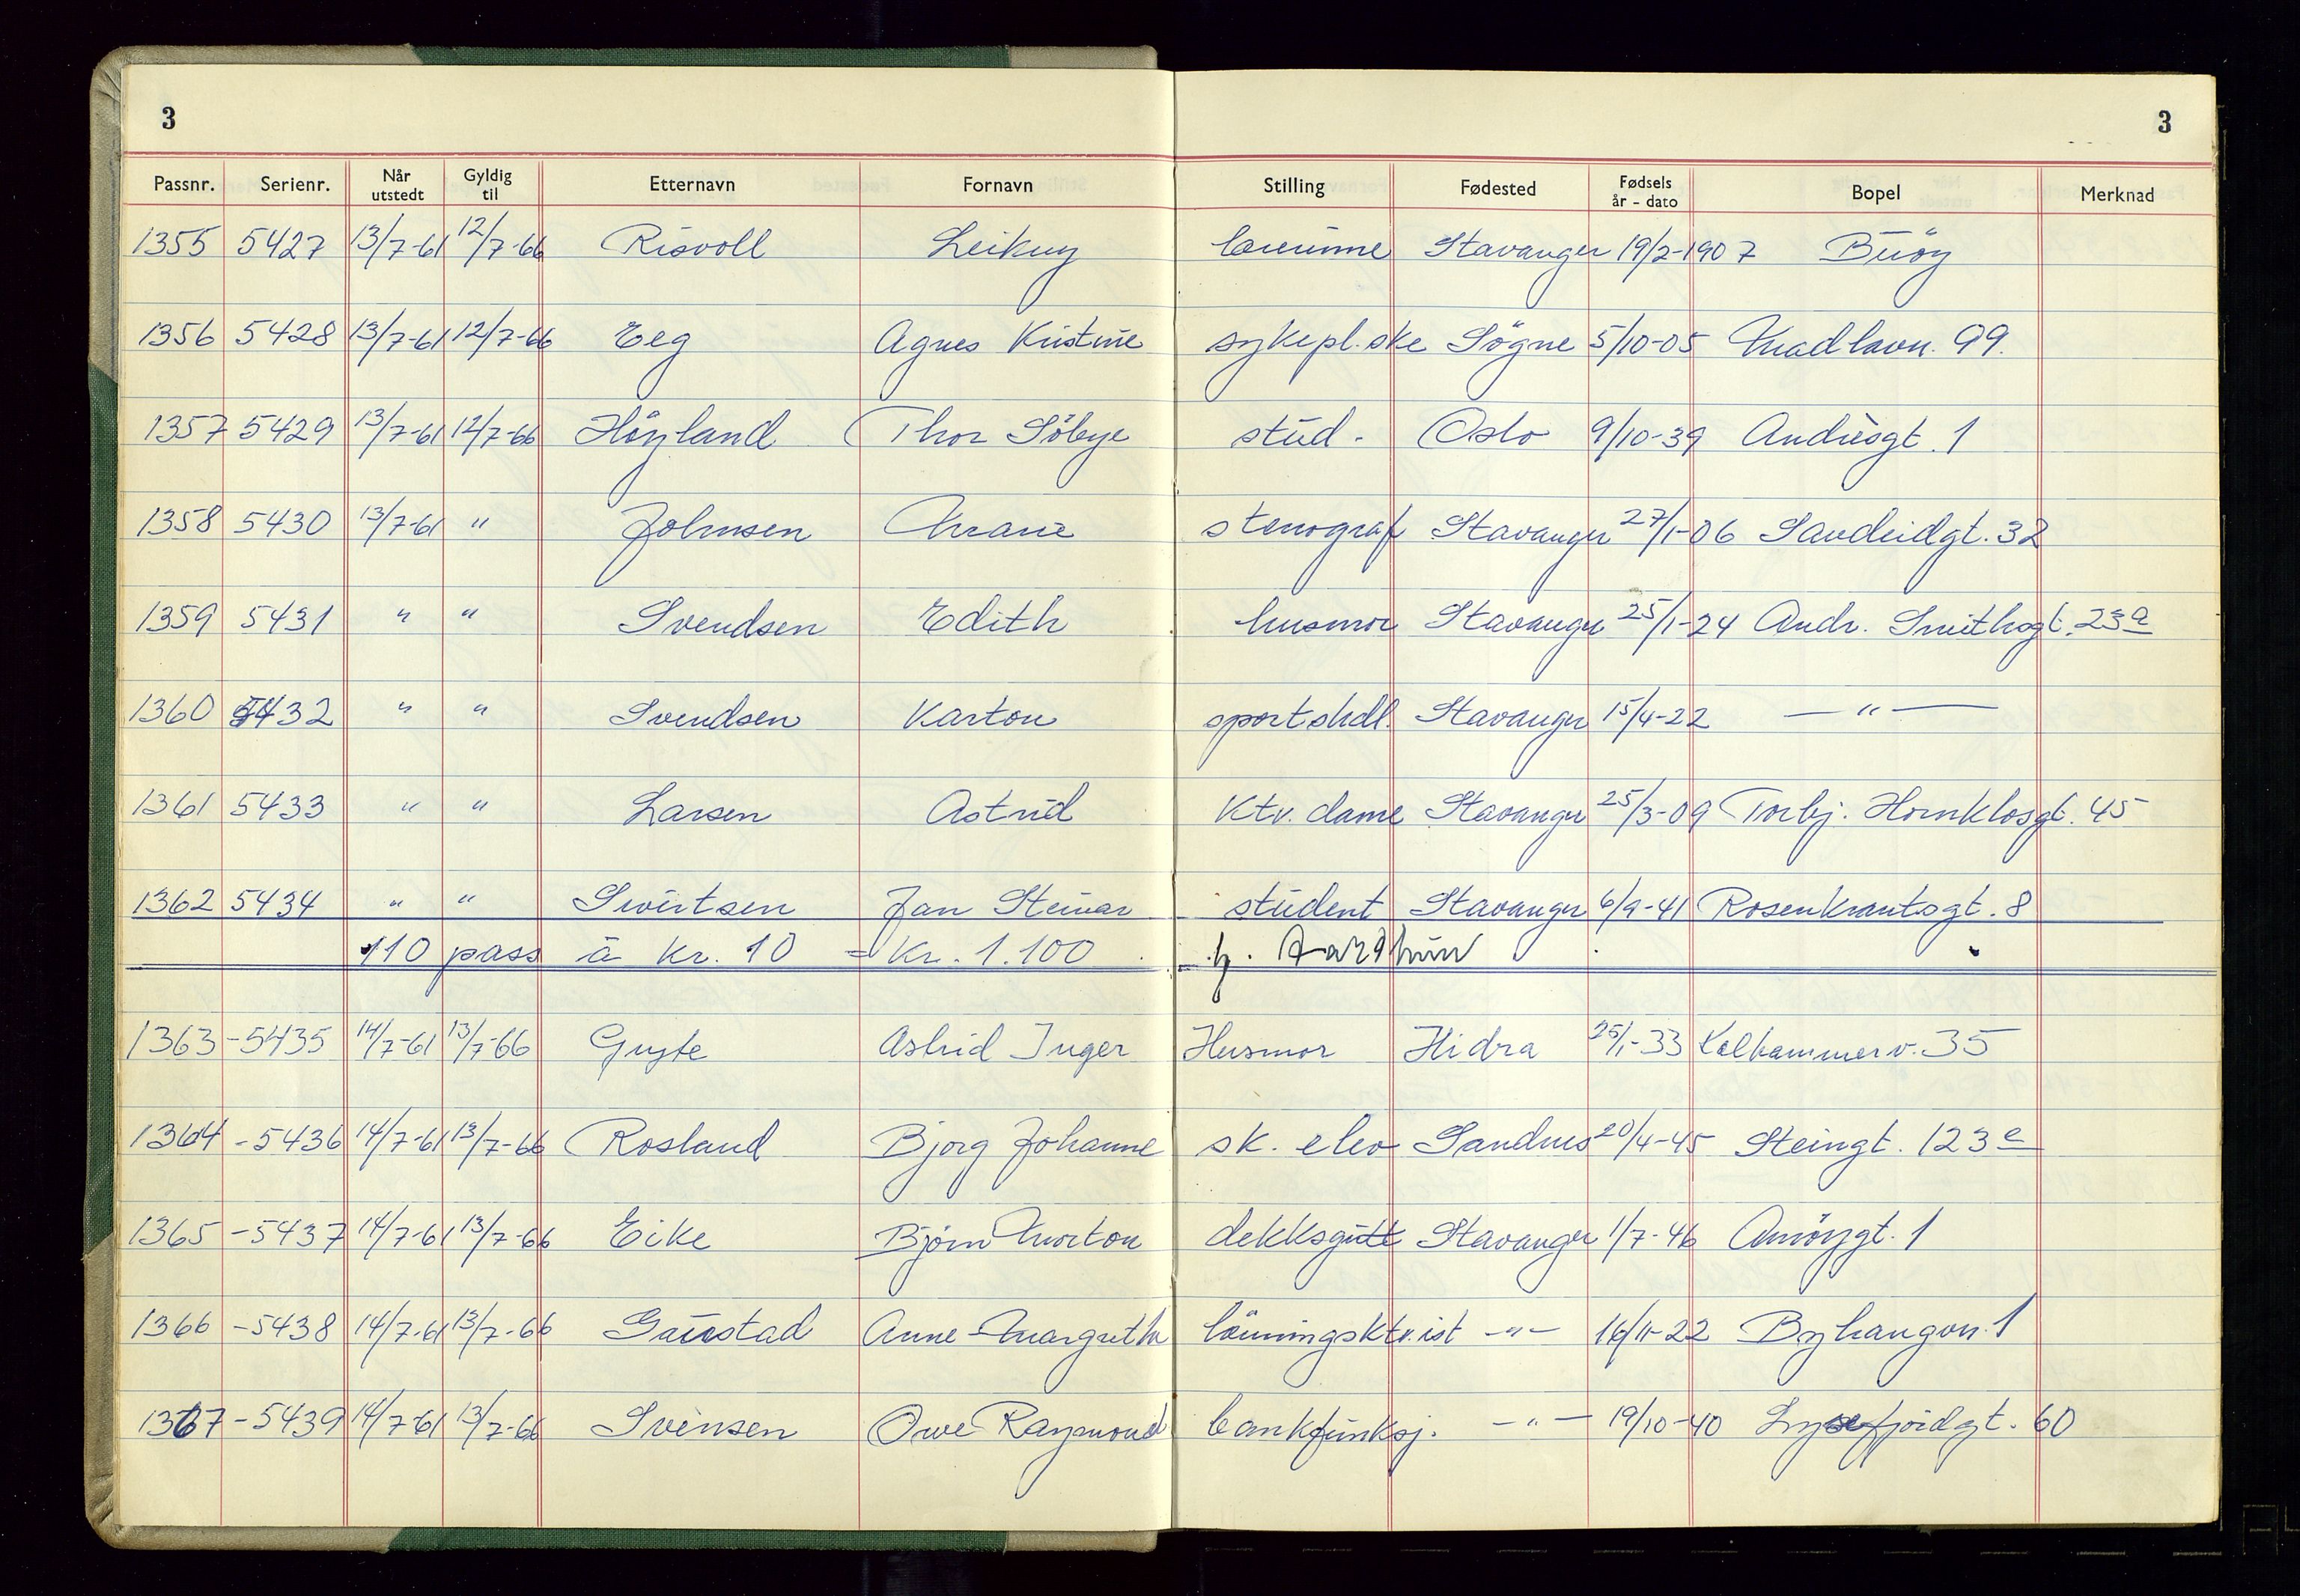 3 3
Passnr. Serienr. Når utstedt Gyldig til Etternavn Fornavn Stilling Fødested Fødsels år - dato Bopel Merknad
1355 5427 13/7-61 12/7-66 Risvoll Leikny Stavanger 19/2-1907 Buöy
1356 5428 13/7-61 12/7-66 Eeg Agnes Kristine sykepl.ske Sögne 5/10-05 Madlavn. 99.
1357 5429 13/7-61 12/7-66 Höyland Thor Söbye stud. Oslo 9/10-39 Andrèsgt. 1
1358 5430 13/7-61 " Johnsen Marie stenograf Stavanger 27/1-06 Sandeidgt. 32
1359 5431 " " Svendsen Edith husmor Stavanger 25/1-24 Andr. Smithsgt. 23a
1360 5432 " " Svendsen Karton sportshdl. Stavanger 15/4-22 — " —
1361 5433 " " Larsen Astrid Ktr. dame Stavanger 25/3-09 Torbj. Hornklosgt. 45
1362 5434 " " Sivertsen Jan Steinar student Stavanger 6/9-41 Rosenkrantsgt. 8
110 pass à Kr. 10 = Kr. 1.100
1363 - 5435 14/7-61 13/7-66 Gryte Astrid Inger Husmor Hidra 25/1-33 Kalhammerv. 35
1364 - 5436 14/7-61 13/7-66 Rosland Bjorg Johanne sk. elev Sandnes 20/4-45 Steingt. 123 e
1365 - 5437 14/7-61 13/7-66 Eike Björn Morton dekksgutt Stavanger 1/7-46 Amöygt. 1
1366 - 5438 14/7-61 13/7-66 Gaustad Anne-Margrethe lönningsktr.ist -"- 16/11-22 Byhaugvn. 1
1367 - 5439 14/7-61 13/7-66 Svensen Owe Raymond bankfunksj. -"- 19/10-40 Lysefjordgt. 60